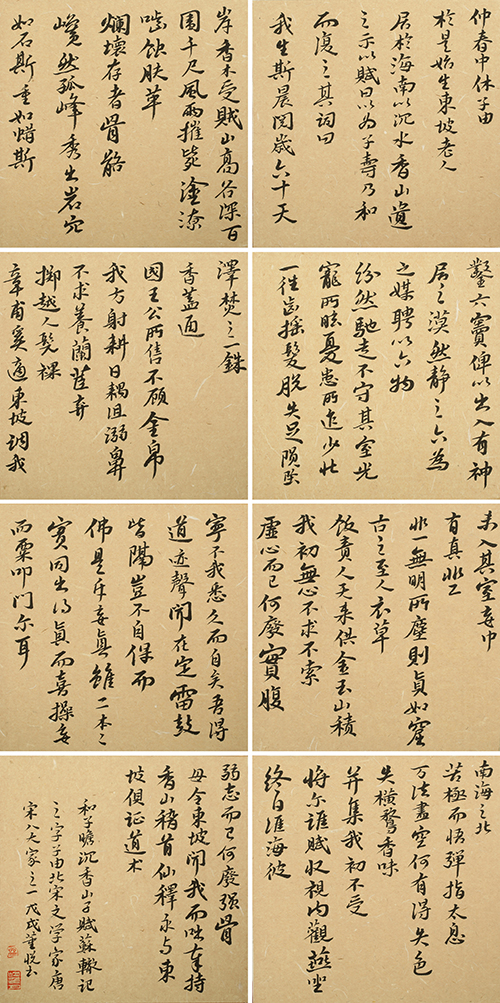 仲春中休子由
於是始生東坡老人
居於海南以沉水香山遺
之示以賦曰以為子壽乃和
而復之其詞曰
我生斯晨閱歲六十天
鑿六竇俾以出入有神
居之漠然靜之六為
之媒聘以六物
紛然馳走不守其室光
寵所眩憂患所迮少壯
一往齒搖髮脫失足隕墜
南海之北
苦極而悟彈指太息
万法盡空何有得失色
失橫騖香味
并集我初不受
將尔誰賊收視內觀燕坐
終日維海彼
岸香木受賊山高谷深百
圍千尺風雨摧斃塗潦
嚙蝕肤草
爛壞存者骨骼
巉然孤峰秀出岩穴
如石斯重如蜡斯
澤焚之一銖
香蓋通
國王公所售不顧金帛
我方躬耕日耦沮溺鼻
不求養蘭茝弃
擲越人髡裸
章甫奚適東坡調我
寧不我悉久而自笑吾得
道迹聲聞在定雷鼓
皆隔豈不自保而
佛是斥妄真雖二本之
實同出得真而喜操妄
而粟叩門尔耳
未入其室妄中
有真非二
非一無明所塵則真如窟
古之至人衣草
飯麥人天来供金玉山積
我初無心不求不索
虛心而已何廢實腹
弱志而已何廢強骨
毋令東坡聞我而咄奉持
香山稽首仙釋永与東
坡俱证道术
和子瞻沉香山子賦蘇轍記
之字子由北宋文学家唐
宋八大家之一戊戌董悦书